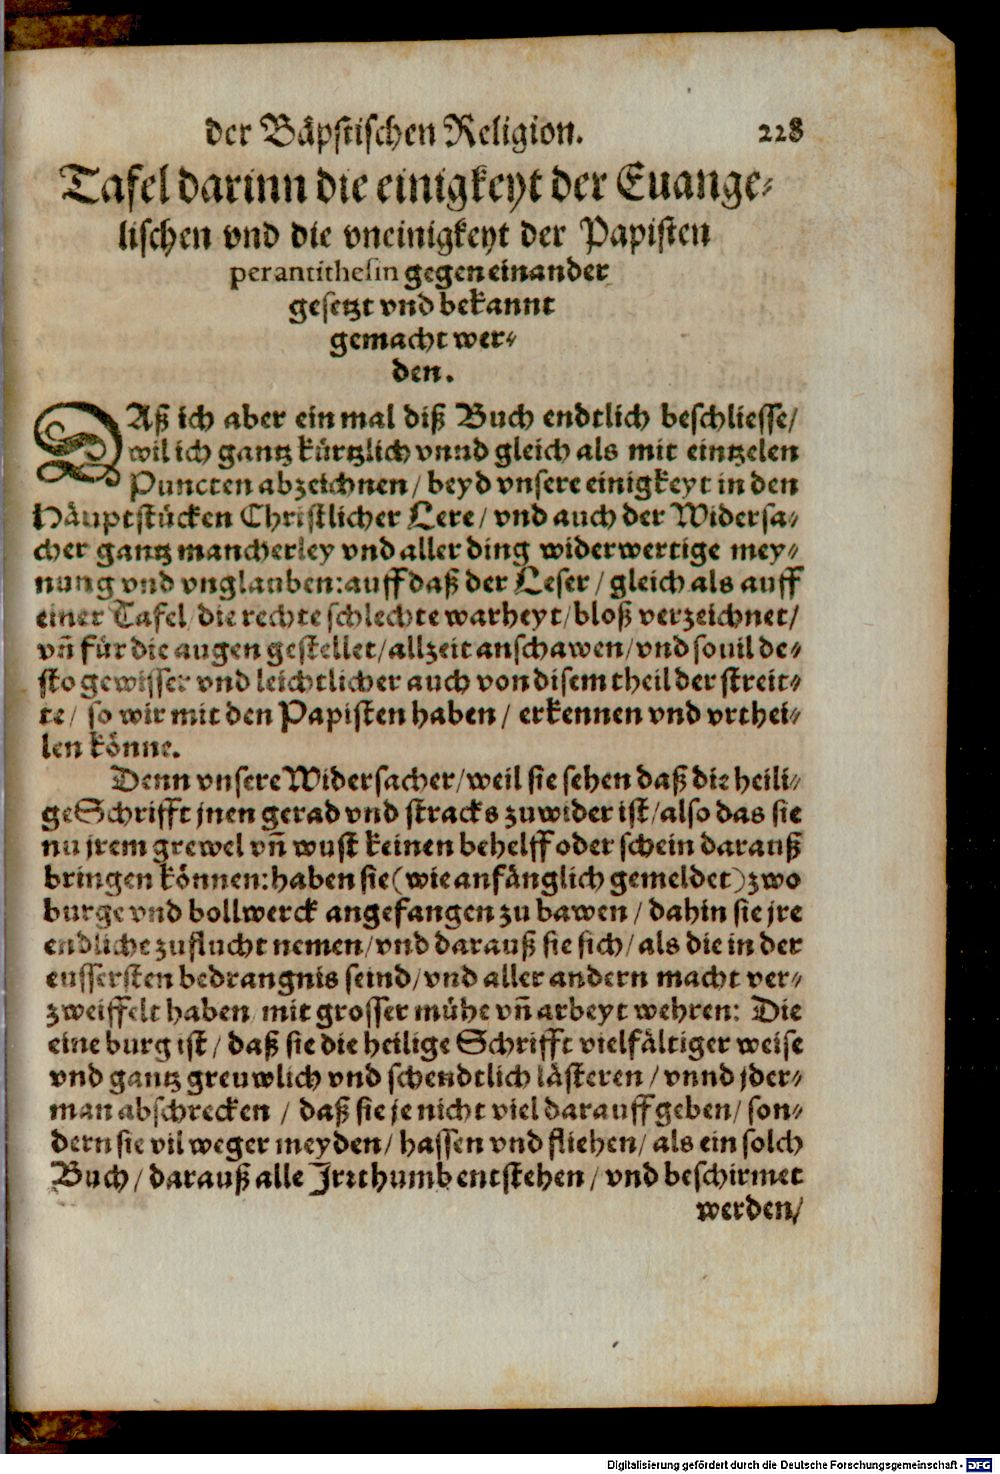 der Bäpstischen Religion. 228
Tafel darinn die einigkeyt der Euange-
lischen vnd die vneinigkeyt der Papisten
per antithesin gegen einander
gesetzt vnd bekannt
gemacht wer-
den.
DAß ich aber ein mal diß Buch endtlich beschliesse/
wil ich gantz kürtzlich vnnd gleich als mit eintzelen
Puncten abzeichnen/ beyd vnsere einigkeyt in den
Häuptstücken Christlicher Lere/ vnd auch der Widersa-
cher gantz mancherley vnd aller ding widerwertige mey-
nung vnd vnglauben: auff daß der Leser/ gleich als auff
einer Tafel/ die rechte schlechte warheyt/ bloß verzeichnet/
vñ für die augen gestellet/ allzeit anschawen/ vnd souil de-
sto gewisser vnd leichtlicher auch von disem theil der streit-
te/ so wir mit den Papisten haben/ erkennen vnd vrthei-
len könne.
Denn vnsere Widersacher/ weil sie sehen daß die heili-
ge Schrifft jnen gerad vnd stracks zuwider ist/ also das sie
nu jrem grewel vñ wust keinen behelff oder schein darauß
bringen können: haben sie (wie anfänglich gemeldet) zwo
burge vnd bollwerck angefangen zu bawen/ dahin sie jre
endliche zuflucht nemen/ vnd darauß sie sich/ als die in der
eussersten bedrangnis seind/ vnd aller andern macht ver-
zweiffelt haben/ mit grosser mühe vñ arbeyt wehren: Die
eine burg ist/ daß sie die heilige Schrifft vielfältiger weise
vnd gantz greuwlich vnd schendtlich lästeren/ vnnd jder-
man abschrecken/ daß sie je nicht viel darauff geben/ son-
dern sie vil weger meyden/ hassen vnd fliehen/ als ein solch
Buch/ darauß alle Jrrthumb entstehen/ vnd beschirmet
werden/
Digitalisierung gefördert durch die Deutsche Forschungsgemeinschaft - DFG